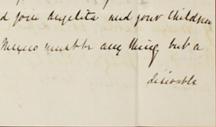 your Angelita and your Children
Mexico must be any thing but a
desirable